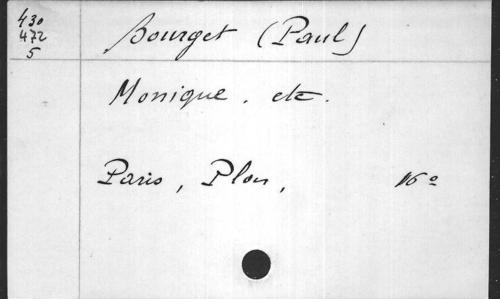 430
472
5
Bourget (Paul)
Monique. etc.
Paris, Plon, 16º